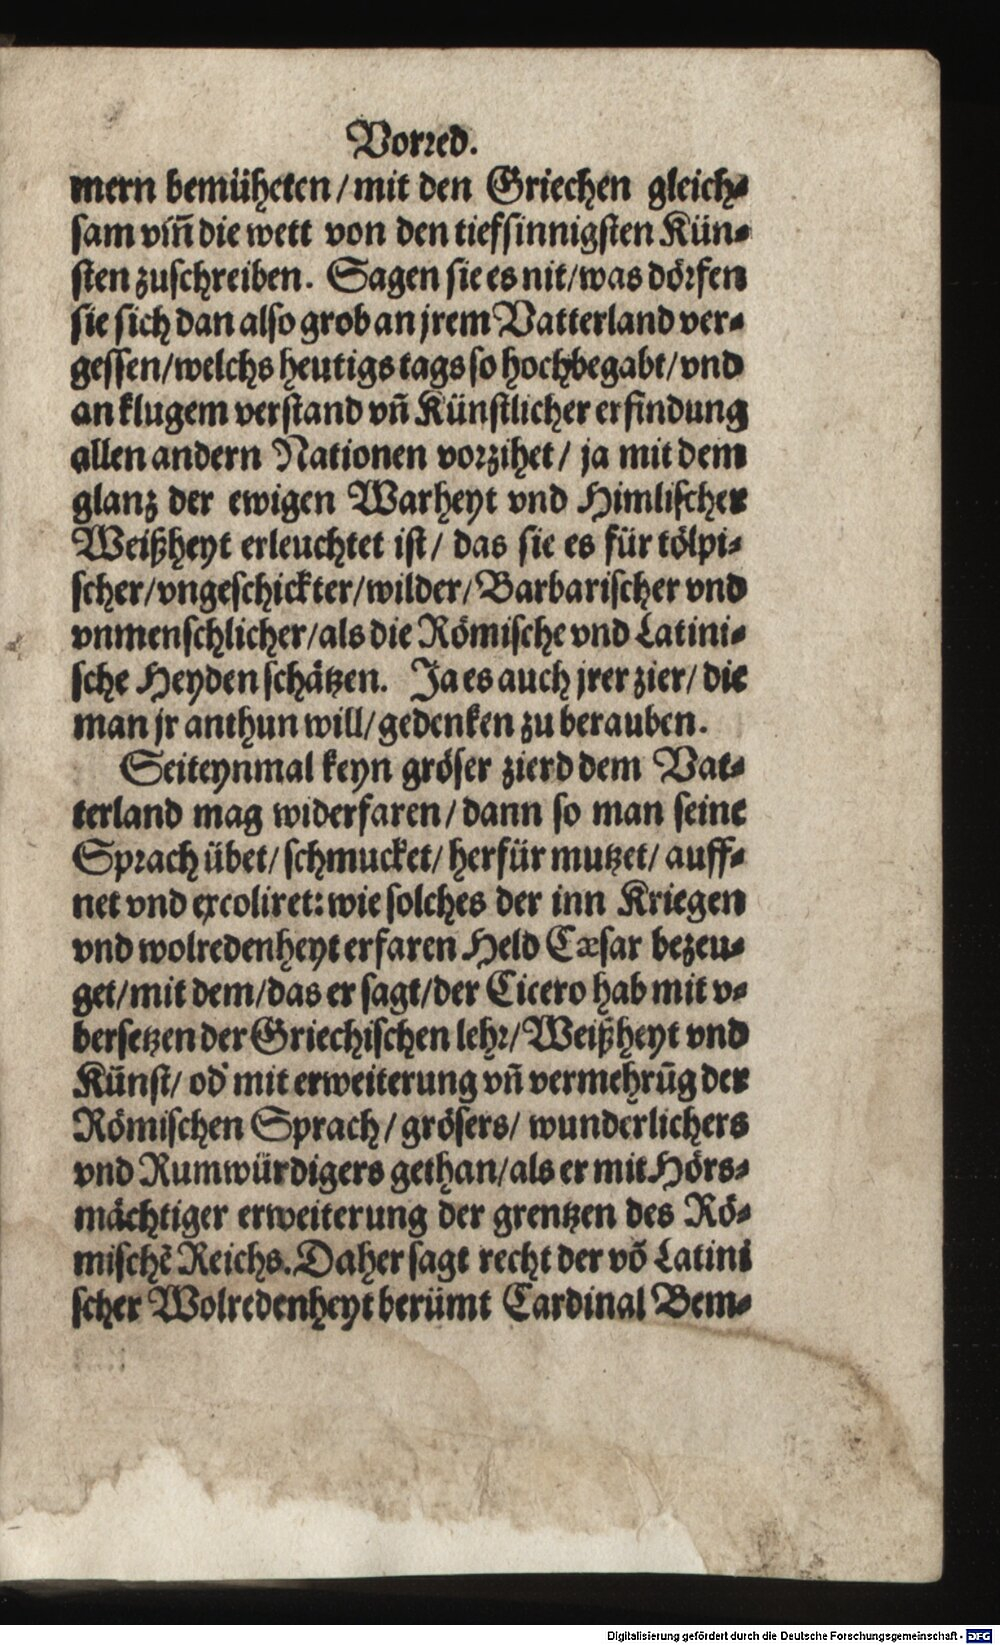 Vorred.
mern bemüheten/mit den Griechen gleich⸗
sam vm̃ die wett von den tiefsinnigsten Kün⸗
sten zuschreiben. Sagen sie es nit/was dörfen
sie sich dan also grob an jrem Vatterland ver⸗
gessen/welchs heutigs tags so hochbegabt/vnd
an klugem verstand vñ Künstlicher erfindung
allen andern Nationen vorzihet/ ja mit dem
glanz der ewigen Warheyt vnd Himlischer
Weißheyt erleuchtet ist/ das sie es für tölpi⸗
scher/vngeschickter/wilder/Barbarischer vnd
vnmenschlicher/als die Römische vnd Latini⸗
sche Heyden schätzen. Ja es auch jrer zier/ die
man jr anthun will/gedenken zu berauben.
Seiteynmal keyn gröser zierd dem Vat⸗
terland mag widerfaren/ dann so man seine
Sprach übet/ schmucket/ herfür mutzet/ auff⸗
net vnd excoliret: wie solches der inn Kriegen
vnd wolredenheyt erfaren Held Cæsar bezeu⸗
get/mit dem/das er sagt/der Cicero hab mit v⸗
bersetzen der Griechischen lehr/Weißheyt vnd
Künst/ od' mit erweiterung vñ vermehrũg der
Römischen Sprach/ grösers/ wunderlichers
vnd Rumwürdigers gethan/als er mit Hörs⸗
mächtiger erweiterung der grentzen des Rö⸗
mischẽ Reichs. Daher sagt recht der võ Latini
scher Wolredenheyt berümt Cardinal Bem⸗
Digitalisierung gefördert durch die Deutsche Forschungsgemeinschaft - DFG